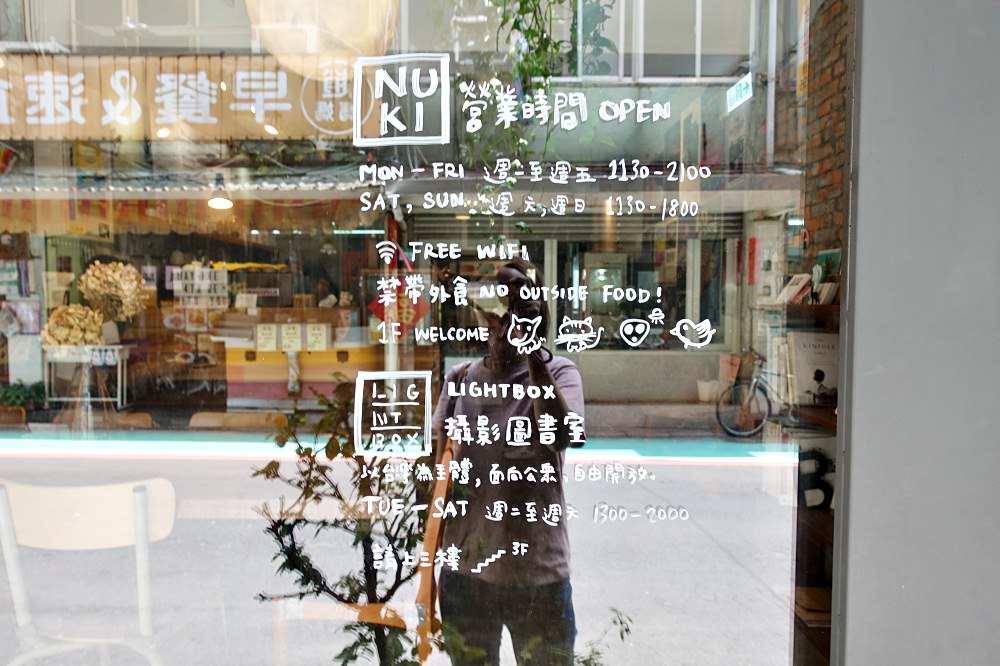 早餐&速
NU
KI
營業時間 OPEN
MON - FRI 週一至週五 1130-2100
SAT, SUN... 週六,週日 1130-1800
FREE WIFI
禁帶外食 NO OUTSIDE FOOD!
1F WELCOME
LIG
HT
BOX
LIGHTBOX
攝影圖書室
以台灣為主體,面向公眾,自由開放。
TUE - SAT 週二至週六 1300-2000
請上三樓 3F